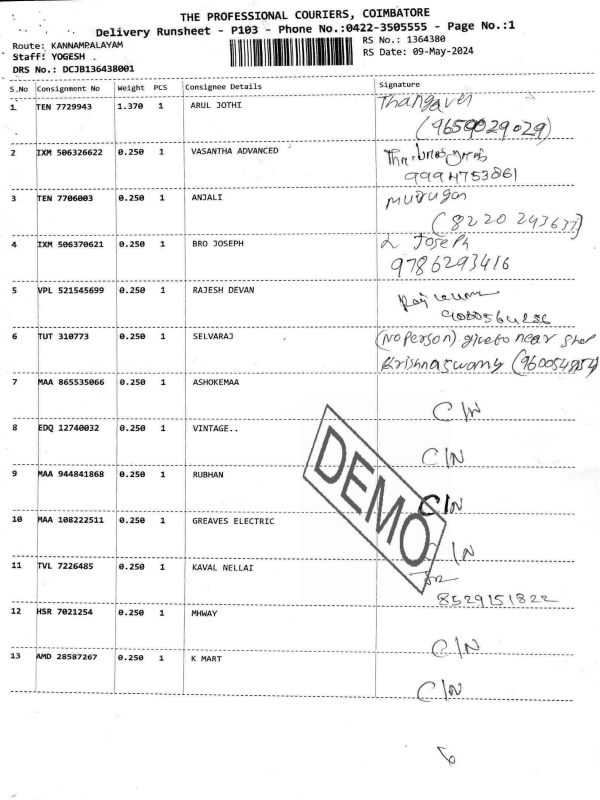 THE PROFESSIONAL COURIERS, COIMBATORE
Delivery Runsheet - P103 - Phone No.:0422-3505555 - Page No.:1
Route: KANNAMPALAYAM RS No.: 1364380
Staff: YOGESH . RS Date: 09-May-2024
DRS No.: DCJB136438001
S.No Consignment No Weight PCS Consignee Details Signature
1 TEN 7729943 1.370 1 ARUL JOTHI Thangavel
(9659029029)
2 IXM 506326622 0.250 1 VASANTHA ADVANCED
9994753861
3 TEN 7706003 0.250 1 ANJALI murugan
(8220 243637)
4 IXM 506370621 0.250 1 BRO JOSEPH L Joseph
9786293416
5 VPL 521545699 0.250 1 RAJESH DEVAN Raj kumar
6 TUT 310773 0.250 1 SELVARAJ (No person) give to near shop
Krishnaswamy
7 MAA 865535066 0.250 1 ASHOKEMAA
C/N
8 EDQ 12740032 0.250 1 VINTAGE..
C/N
9 MAA 944841868 0.250 1 RUBHAN
C/N
10 MAA 108222511 0.250 1 GREAVES ELECTRIC
C/N
11 TVL 7226485 0.250 1 KAVAL NELLAI
8529151822
12 HSR 7021254 0.250 1 MHWAY
C/N
13 AMD 28587267 0.250 1 K MART
C/N
DEMO